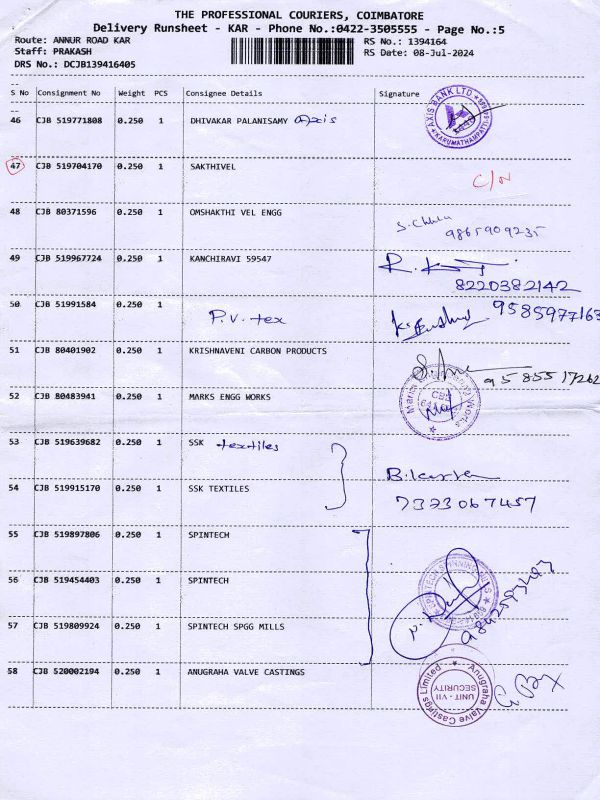 THE PROFESSIONAL COURIERS, COIMBATORE
Delivery Runsheet - KAR - Phone No.:0422-3505555 - Page No.:5
Route: ANNUR ROAD KAR RS No.: 1394164
Staff: PRAKASH RS Date: 08-Jul-2024
DRS No.: DCJB139416405
S No Consignment No Weight PCS Consignee Details Signature
46 CJB 519771808 0.250 1 DHIVAKAR PALANISAMY Axis
AXIS BANK LTD KARUMATHAMPATTI
47 CJB 519704170 0.250 1 SAKTHIVEL C/N
48 CJB 80371596 0.250 1 OMSHAKTHI VEL ENGG
9865909235
49 CJB 519967724 0.250 1 KANCHIRAVI 59547
8220382142
50 CJB 51991584 0.250 1 P.V. tex
9585977163
51 CJB 80401902 0.250 1 KRISHNAVENI CARBON PRODUCTS
9585517262
52 CJB 80483941 0.250 1 MARKS ENGG WORKS
53 CJB 519639682 0.250 1 SSK textiles
54 CJB 519915170 0.250 1 SSK TEXTILES
7323067457
55 CJB 519897806 0.250 1 SPINTECH
56 CJB 519454403 0.250 1 SPINTECH
57 CJB 519809924 0.250 1 SPINTECH SPGG MILLS
58 CJB 520002194 0.250 1 ANUGRAHA VALVE CASTINGS
Anugraha Valve Castings Limited
UNIT - VII
SECURITY